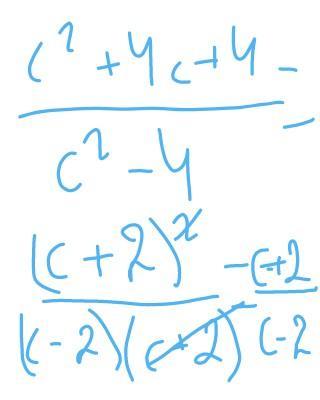 c² + 4c + 4 =
c² - 4
(c + 2)² = c + 2
(c - 2)(c + 2) c - 2